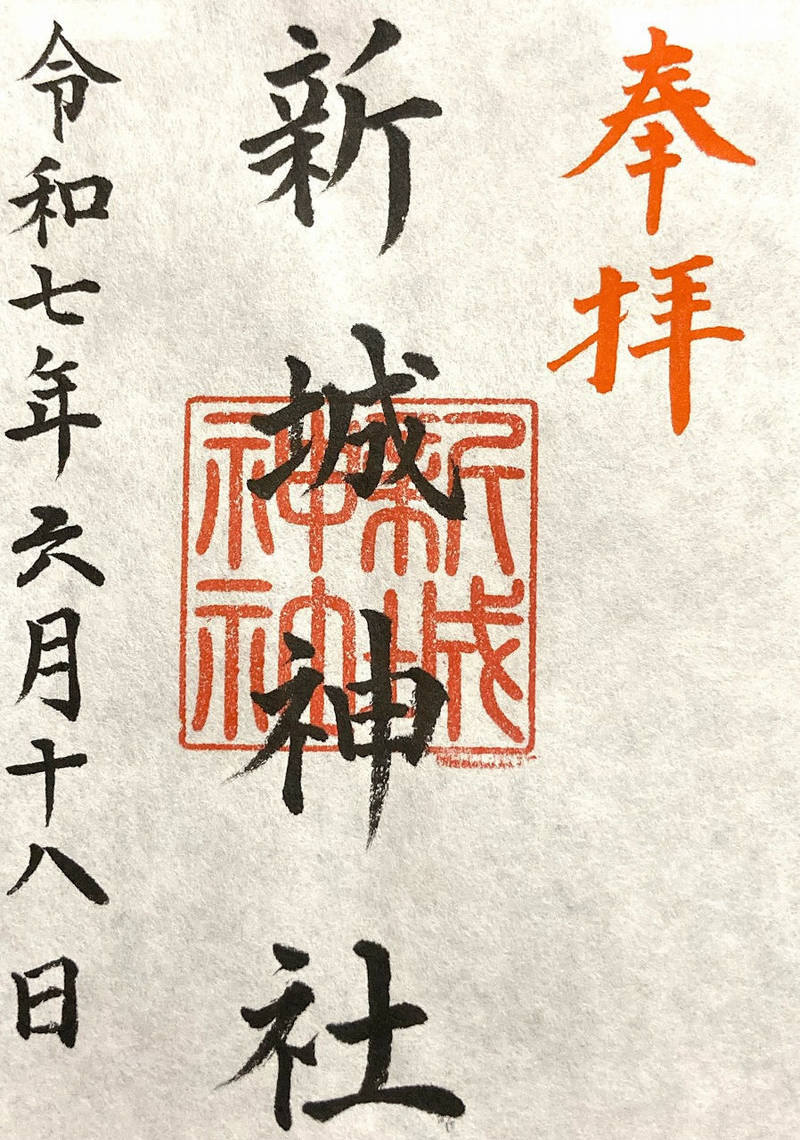 奉拝
新城神社
新城
神神
令和七年六月十八日